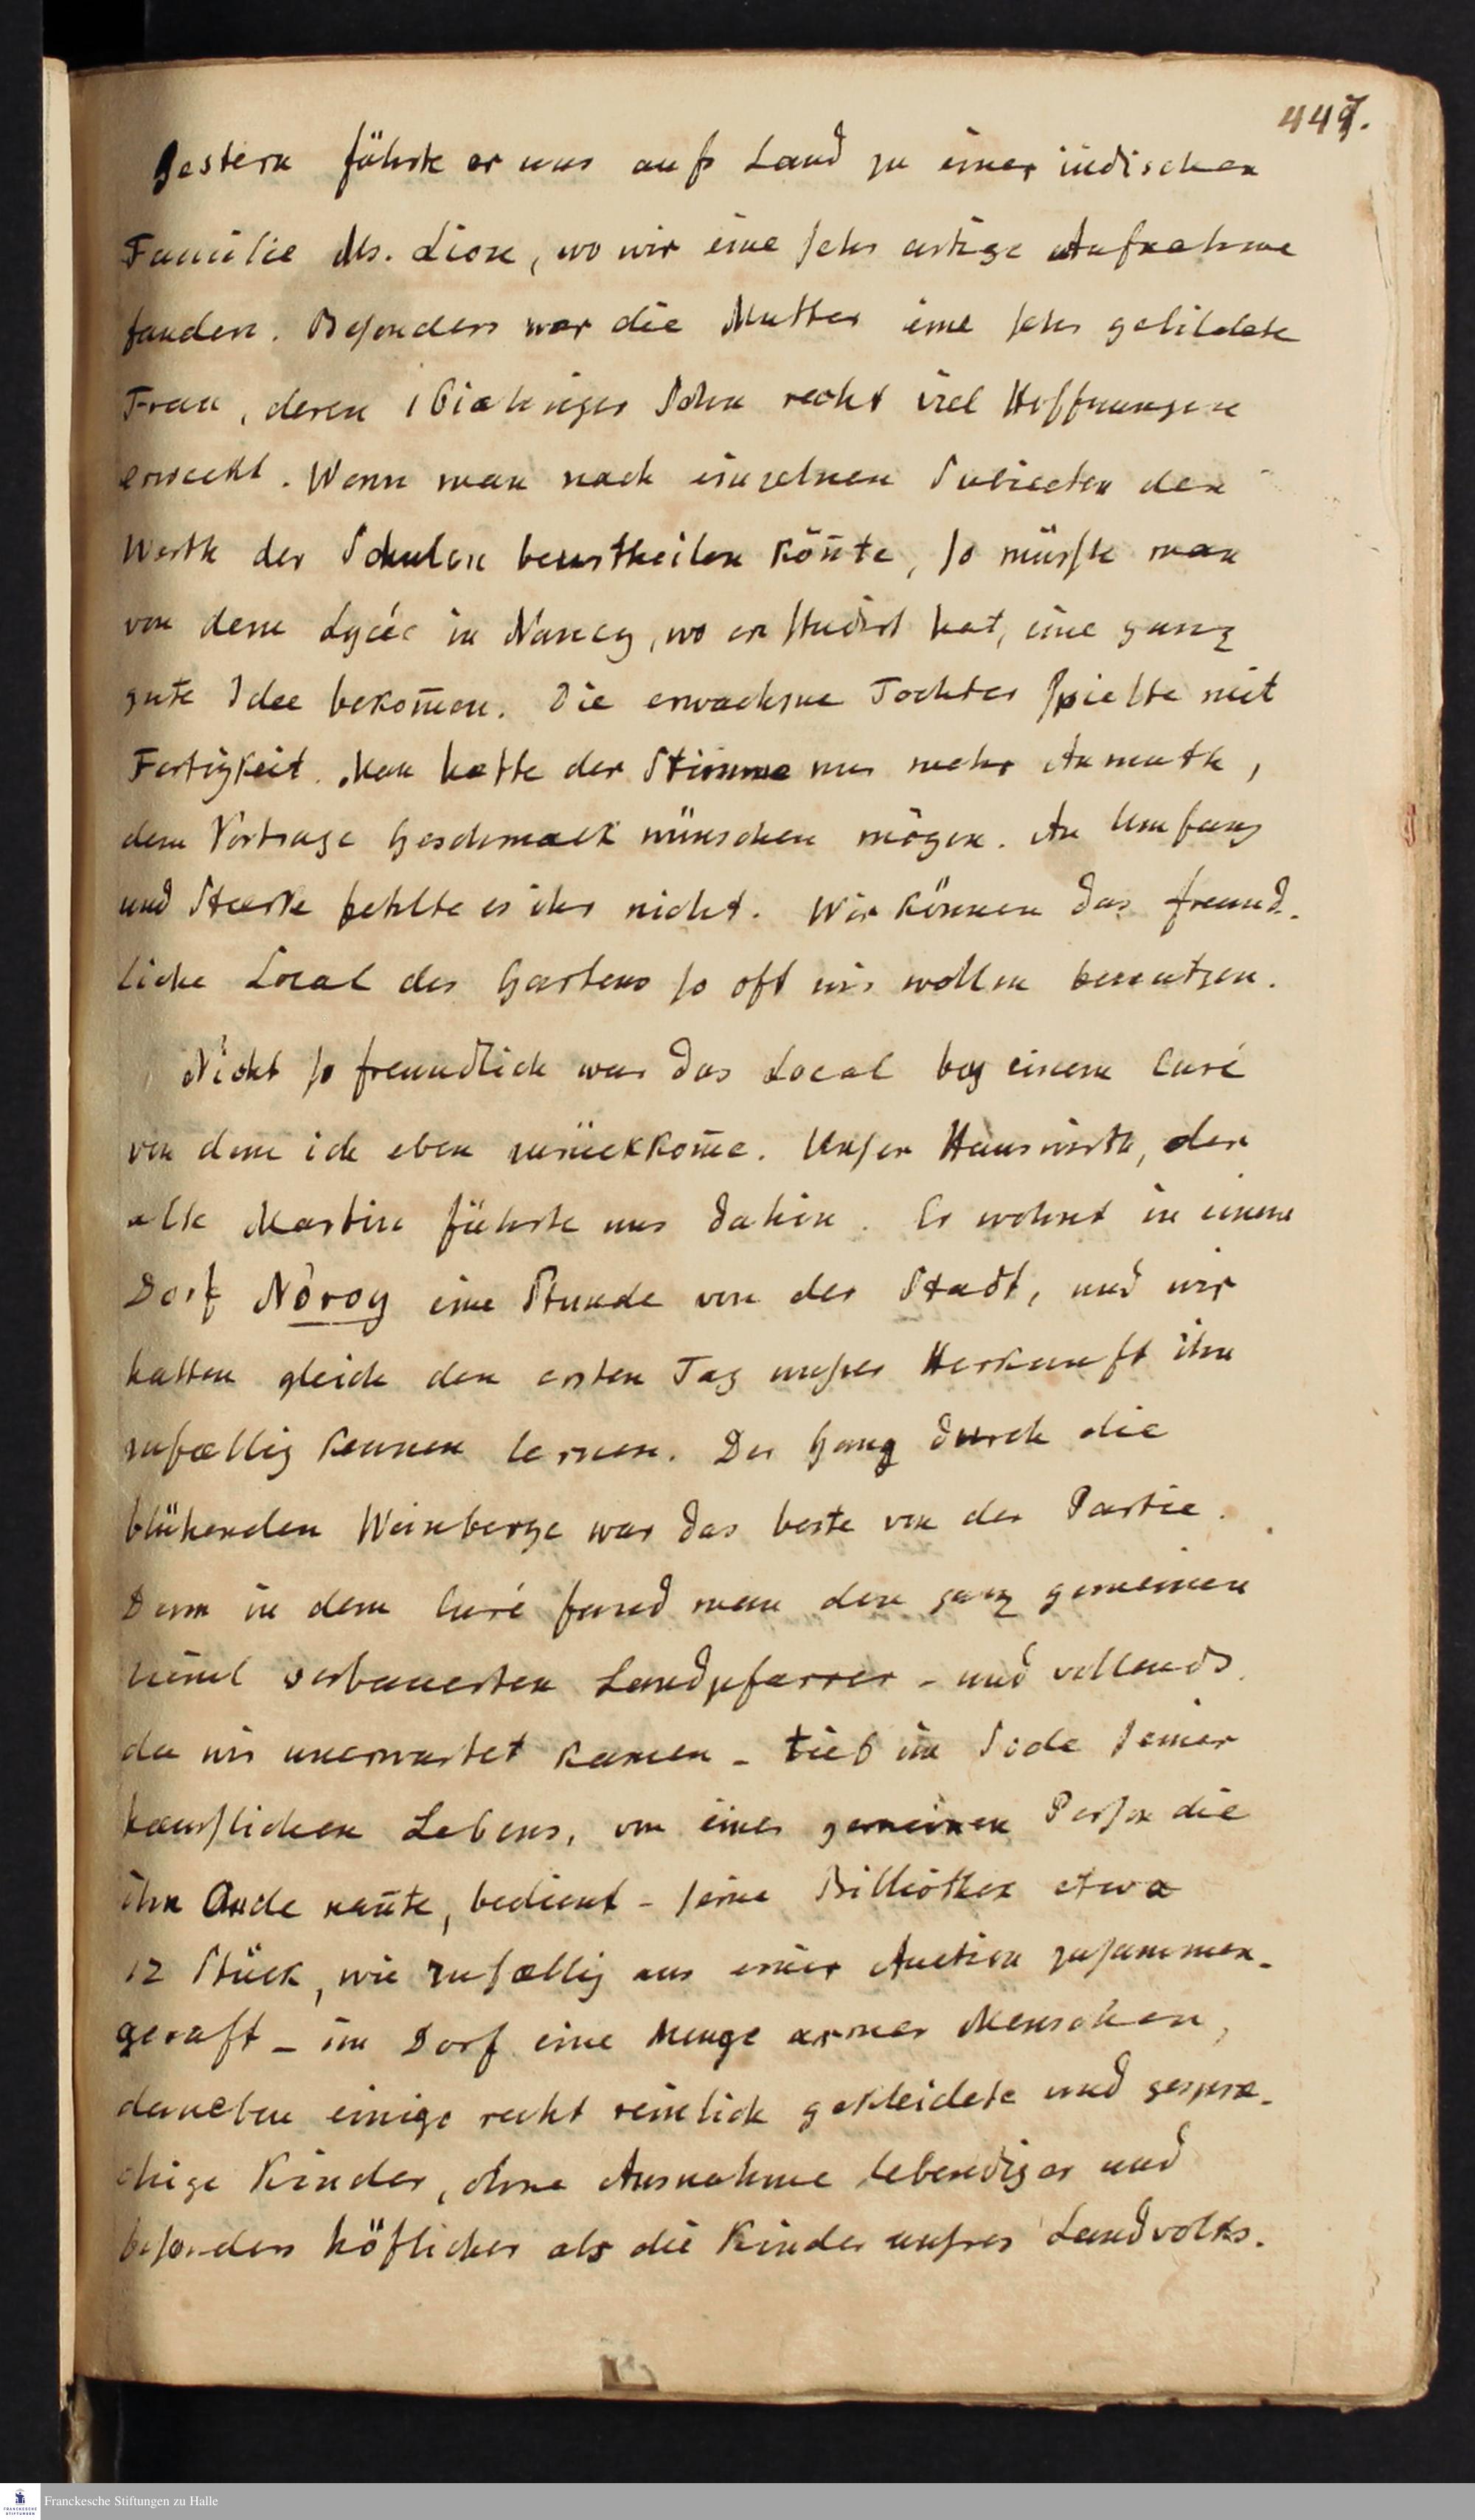 447.
Gestern führte er uns aufs Land zu einer iüdischen
Familie Ms. Lion, wo wir eine sehr artige Aufnahme
fanden. Besonders war die Mutter eine sehr gebildete
Frau, deren 16iähriger Sohn recht viel Hoffnungen
erweckt. Wenn man nach einzelnen Subiecten den
Werth der Schulen beurtheilen kön̄te, so müsste man
von dem Lycée in Nancy, wo er studirt hat, eine ganz
gute Idee bekom̄en. Die erwachsne Tochter spielte mit
Fertigkeit. Man hätte der Stimme nur mehr Anmuth,
dem Vortrage Geschmack wünschen mögen. An Umfang
und Staerke fehlte es ihr nicht. Wir können das freund-
liche Local des Gartens so oft wir wollen benutzen.
Nicht so freundlich war das Local bey einem Curé
von dem ich eben zurückkom̄e. Unser Hauswirth, der
alte Martin führte uns dahin. Er wohnt in einem
Dorf Noroy eine Stunde von der Stadt, und wir
hatten gleich den ersten Tag unsrer Herkunft ihn
zufaellig kennen lernen. Der Gang durch die
blühenden Weinberge war das beste von der Partie.
Denn in dem Curé fand man den ganz gemeinen
verbauerten Landpfarrer - und vollends
da wir unerwartet kamen - tief in seiner
haeuslichen Lebens, von einer gemeinen Person die
ihn nan̄te, bedient - seine Bibliothek etwa
12 Stück, wie zufaellig aus einer Auction zusammen-
geraft - im Dorf eine Menge armer Menschen,
daneben einige recht reinlich gekleidete und gesprae-
chige Kinder, ohne Ausnahme lebendiger und
besonders höflicher als die Kinder unsres Landvolks.
Franckesche Stiftungen zu Halle